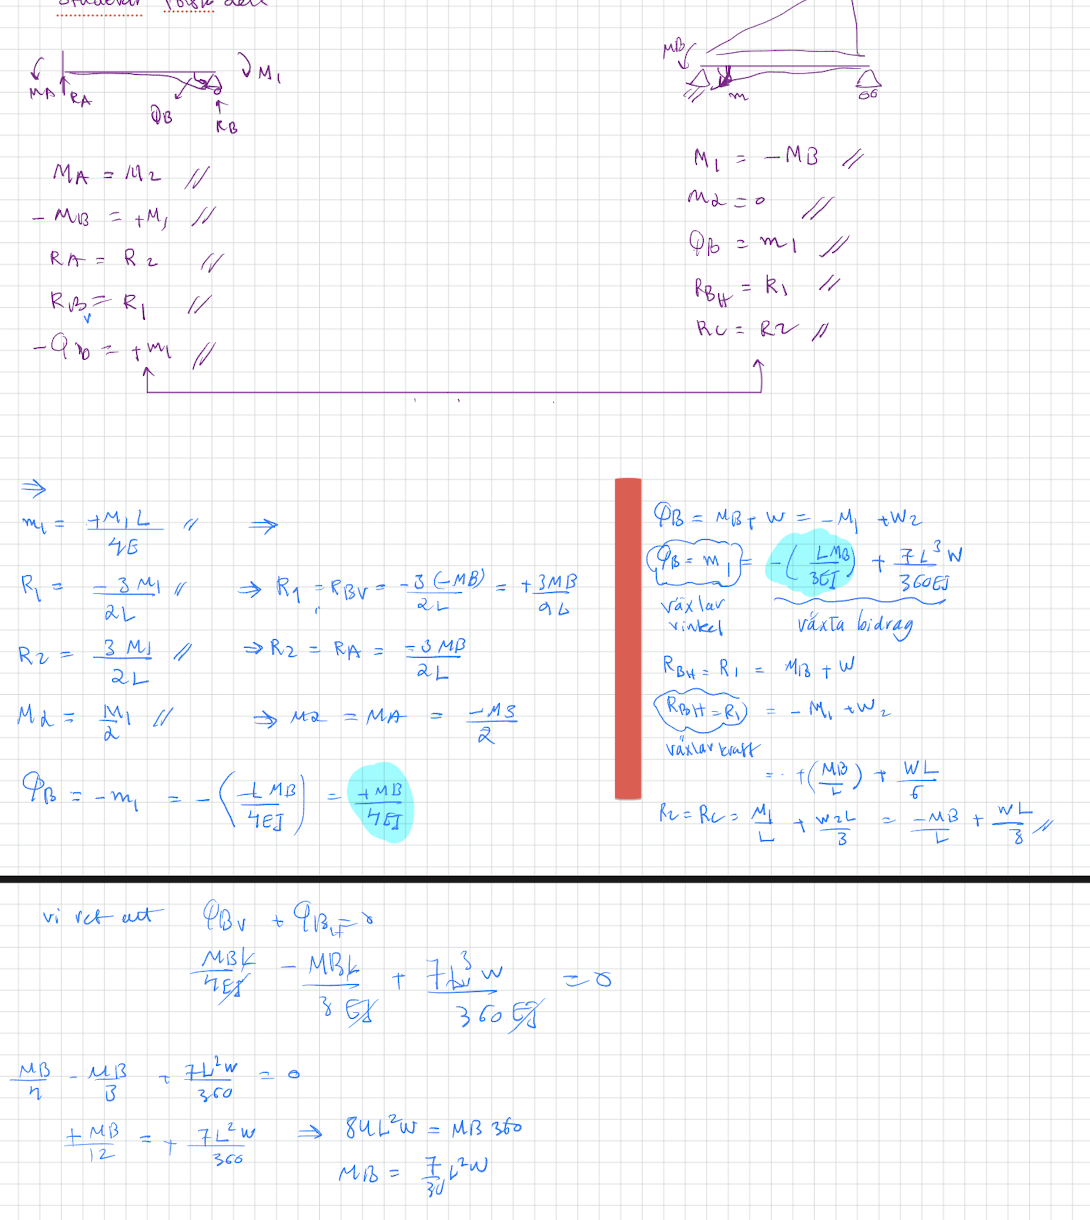 MA RA φB RB M1
MA = M2 //
- MB = +M1 //
RA = R2 //
RBv = R1 //
-φb = +m1 //
MB m
M1 = -MB //
M2 = 0 //
φB = m1 //
RBH = R1 //
RC = R2 //
⇒
m1 = +M1 L / 4E // ⇒
R1 = -3M1 / 2L // ⇒ R1 = RBV = -3(-MB) / 2L = +3MB / 2L
R2 = 3M1 / 2L // ⇒ R2 = RA = -3MB / 2L
M2 = M1 / 2 // ⇒ M2 = MA = -MB / 2
φB = -m1 = -(-LMB / 4EJ) = +MB / 4EJ
φB = MB + W = -M1 + W2
φB = m1 = -(LMB / 3EJ) + 7L³W / 360EJ
växlar vinkel
växta bidrag
RBH = R1 = MB + W
RBH = R1 = -M1 + W2
växlar kraft
= +(MB / L) + WL / 6
R2 = RC = M1 / L + W2L / 3 = -MB / L + WL / 3 //
vi vet att φBv + φBH = 0
MBL / 4EJ - MBL / 3EJ + 7L³W / 360EJ = 0
MB / 4 - MB / 3 + 7L²W / 360 = 0
+MB / 12 = + 7L²W / 360 ⇒ 84L²W = MB 360
MB = 7 / 30 L²W